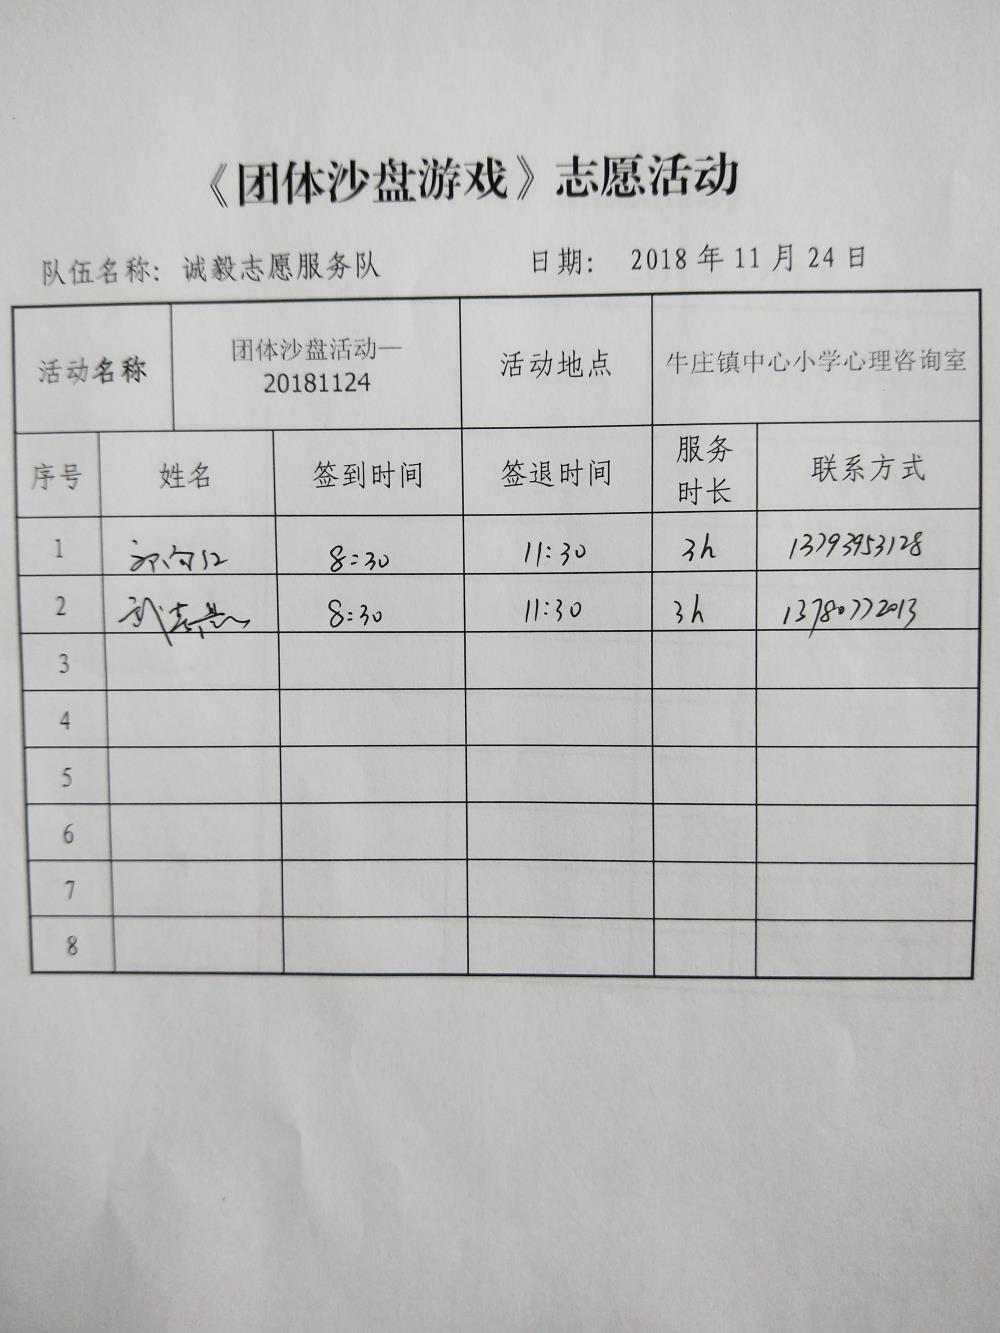 《团体沙盘游戏》志愿活动
队伍名称: 诚毅志愿服务队 日期: 2018 年 11 月 24 日
活动名称 团体沙盘活动—20181124 活动地点 牛庄镇中心小学心理咨询室
序号 姓名 签到时间 签退时间 服务时长 联系方式
1 8:30 11:30 3h 13793953128
2 8:30 11:30 3h 13780772013
3
4
5
6
7
8